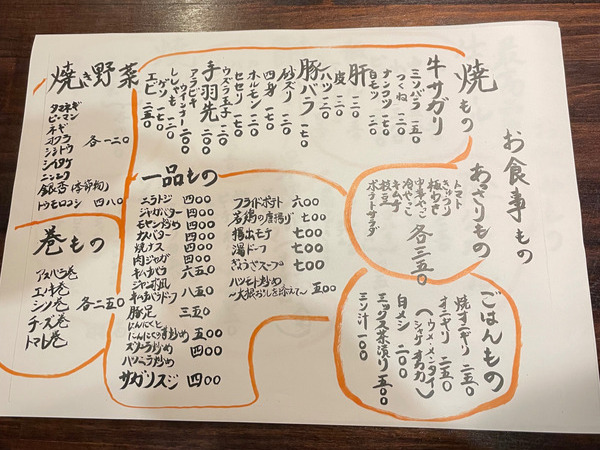 お食事もの
焼もの
牛サガリ
ミソバラ 一五〇
つくね 一二〇
ナンコツ 一七〇
白モツ 一二〇
肝
皮 一二〇
ハツ 一二〇
豚バラ 一七〇
砂ズリ 一二〇
ホルモン 一二〇
四身 一七〇
セセリ 一七〇
ウズラ玉子 一二〇
手羽先 二〇〇
アラビキ
ウィンナー
ししゃも 一七〇
ゲソ 一七〇
エビ 二五〇
焼き野菜
タマネギ
ピーマン
ネギ
オクラ
シシトウ
シイタケ
ニンニク
各一二〇
銀杏(季節物)
トウモロコシ 四八〇
巻もの
アスパラ巻
エノキ巻
シソ巻
チーズ巻
トマト巻
各二五〇
一品もの
ニラトジ 四〇〇
ジャガバター 四〇〇
モヤシ炒め 四〇〇
カスバター 四〇〇
焼ナス 四〇〇
肉ジャガ 四〇〇
キムチバラ 六五〇
ジャン豆風
キムチバラドウフ 八五〇
豚足 三五〇
にんにくと
にんにくの芽炒め 五〇〇
ズリニラ炒め 四〇〇
ハツニラ炒め
サガリスジ 四〇〇
フライドポテト 六〇〇
若鶏の唐揚げ 七〇〇
揚出モチ 七〇〇
湯ドーフ 七〇〇
ぎょうざスープ 七〇〇
ハツモト炒め
〜大根おろしを添えて〜 五〇〇
あっさりもの
トマト
きゅうり
梅きゅう
中華やっこ
冷やっこ
キムチ
枝豆
ポテトサラダ
各三五〇
ごはんもの
焼オニギリ 二五〇
オニギリ 二五〇
(ウメ・メンタイ
シャケ・オカカ)
白メシ 二〇〇
ミックス茶漬け 五〇〇
ミソ汁 一〇〇